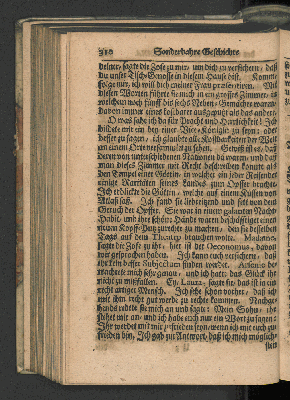 310 Sonderbahre Geschichte
deiner, sagte die Jose zu mir, um dich zu versichern, daß
du unser Tisch-Genosse in diesem Hause bist. Komme,
folge mir, ich will dich meiner Frau præsentiren. Mit
diesen Worten führte sie mich in ein grosses Zimmer, in
welchem noch fünff biß sechs Neben-Gemächer waren,
davon immer eines kostbarer ausgeputzt als das andere.
O was sahe ich da für Pracht und Herrlichkeit! Ich
bildete mir ein bey einer Vice-Königin zu seyn: oder
besser zu sagen, ich glaubte alle Kostbarkeiten der Welt
an einem Orte versammlet zu sehen. Gewiß ist es, daß
deren von unterschiedenen Nationen da waren, und daß
man dieses Zimmer mit Recht beschreiben konnte als
den Tempel einer Göttin, in welchen ein jeder Reisender
einige Raritäten seines Landes zum Opffer brachte.
Ich erblickte die Göttin, welche auf einem Küssen von
Atlaß saß. Ich fand sie liebreitzend und fett von dem
Geruch der Opffer. Sie war in einem galanten Nacht-
Habit, und ihre schöne Hände waren beschäfftiget einen
neuen Kopff-Putz zurechte zu machen, den sie desselben
Tags auf dem Theatro brauchen wolte. Madame,
sagte die Jose zu ihr, hier ist der Oeconomus, davon
wir gesprochen haben. Ich kan euch versichern, daß
ihr kein besser Subjectum finden werdet. Arsenia be-
trachtete mich sehr genau, und ich hatte das Glück ihr
nicht zu mißfallen. Ey, Laura, sagte sie, das ist ein
recht artiger Mensch. Ich sehe schon vorher, daß ich
mit ihm recht gut werde zu rechte kommen. Nachge-
hends redete sie mich an und sagte: Mein Sohn, ihr
stehet mir an, und ich habe euch nur ein Wort zu sagen:
Ihr werdet mit mir zufrieden seyn, wenn ich mit euch zu-
frieden bin. Ich gab zur Antwort, daß ich mich möglich-
sten